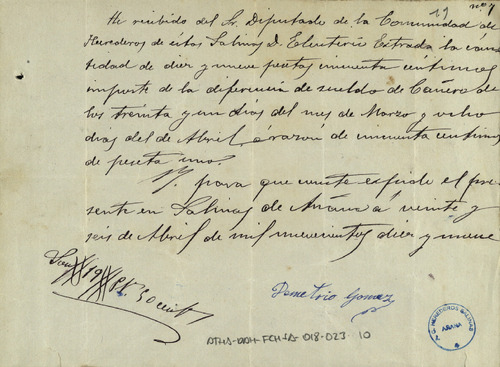 19 nº 7
He recibido del Sr. Diputado de la Comunidad de
Herederos de estas Salinas D. Eleuterio Extrada la can-
tidad de diez y nueve pesetas cincuenta céntimos
importe de la diferencia de sueldo de Cañero de
los treinta y un días del mes de Marzo y ocho
días del de Abril, á razón de cincuenta céntimos
de peseta uno.
Y para que conste expido el pre-
sente en Salinas de Añana á veinte y
seis de Abril de mil novecientos diez y nueve
Son 19
Demetrio Gomez
HEREDEROS SALINAS
AÑANA
ATHA-DAH-FCHSA-018-023 10